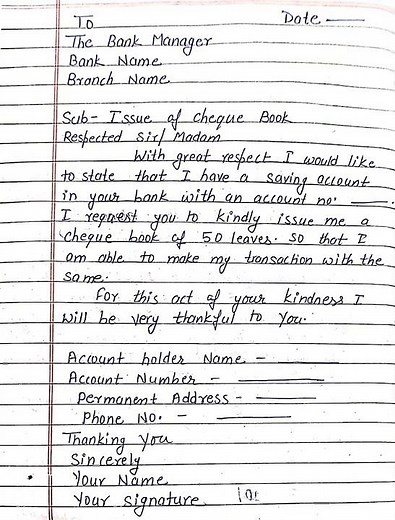 To Date -
The Bank Manager
Bank Name
Branch Name
Sub- Issue of cheque Book
Respected Sir/ Madam
With great respect I would like
to state that I have a saving account
in your bank with an account no. ____.
I request you to kindly issue me a
cheque book of 50 leaves. so that I
am able to make my transaction with the
same.
For this act of your kindness I
will be very thankful to you.
Account holder Name -
Account Number - ____
Permanent Address - ____
Phone No. - ____
Thanking you
Sincerely
Your Name
Your signature